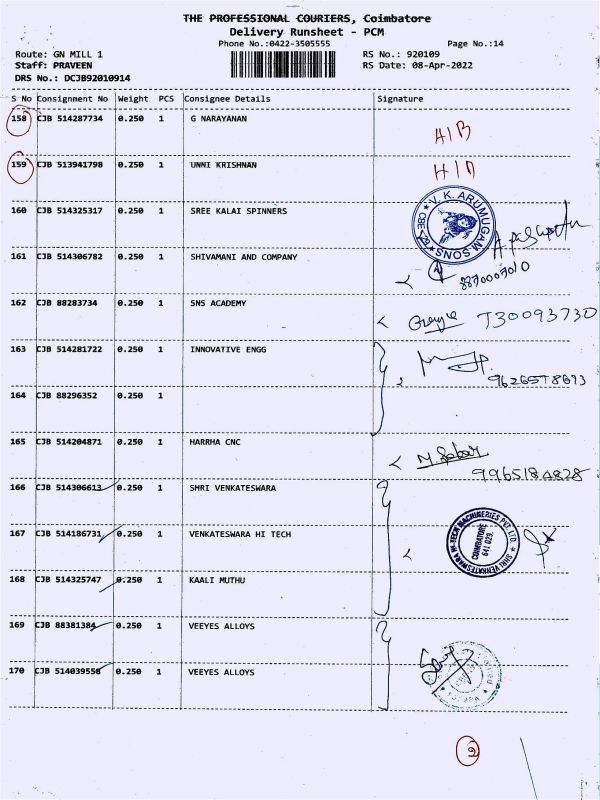 THE PROFESSIONAL COURIERS, Coimbatore
Delivery Runsheet - PCM
Phone No.:0422-3505555 Page No.:14
Route: GN MILL 1 RS No.: 920109
Staff: PRAVEEN RS Date: 08-Apr-2022
DRS No.: DCJB92010914
S No Consignment No Weight PCS Consignee Details Signature
158 CJB 514287734 0.250 1 G NARAYANAN
159 CJB 513941798 0.250 1 UNNI KRISHNAN
160 CJB 514325317 0.250 1 SREE KALAI SPINNERS
V.K. ARUMUGAM SONS
161 CJB 514306782 0.250 1 SHIVAMANI AND COMPANY
8870007010
162 CJB 88283734 0.250 1 SNS ACADEMY
T30093730
163 CJB 514281722 0.250 1 INNOVATIVE ENGG
164 CJB 88296352 0.250 1
165 CJB 514204871 0.250 1 HARRHA CNC
166 CJB 514306613 0.250 1 SHRI VENKATESWARA
167 CJB 514186731 0.250 1 VENKATESWARA HI TECH
SHRI VENKATESWARA HI-TECH MACHINERIES PVT. LTD.
COIMBATORE
641 029.
168 CJB 514325747 0.250 1 KAALI MUTHU
169 CJB 88381384 0.250 1 VEEYES ALLOYS
170 CJB 514039558 0.250 1 VEEYES ALLOYS